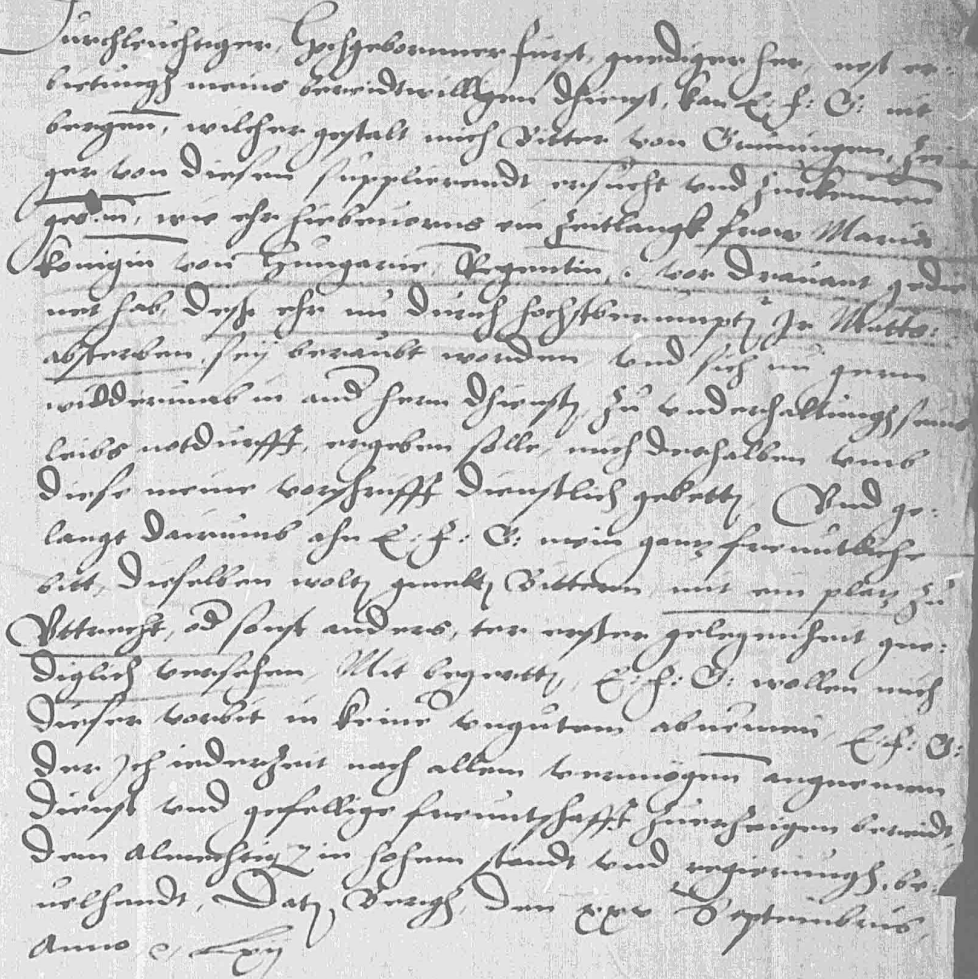 Durchleuchtiger, Hochgebornner furst, gnediger her, nest er-
bietungh meins bereidtwilligen dhienst, kan E. f. G. nit
bergen, wilcher gestalt mich Ritter von Gruningen, Zei-
ger von diesem supplicerendt ersucht und zuerkennen
geben, wie ehr hiebeuorns ein Zeitlangk frow Maria
Konigin von Hungarie, Regentin, vor drauant gedie-
net hab, dess ehr nu durch hochstberumpt Ir Matt.
absterben sey beraubt worden, und sich nu gern
widderumb in and hern dhienst zu underhaltungh seins
leibs notdurfft, ergeben solle, mich derhalben umb
diese meine vorschrifft dienstlich gebett, Und ge-
langt darumb ahn E. f. G. mein gantz freuntliche
bitt, dieselben wolt gmelt Rittern mit ein platz zu
Uttrecht, od sonst anders, ter erster gelegenheit gne-
diglich versehen, Mit begertt, E. f. G. wollen mich
dieser vorbit in keine ungutem abnemen, E. f. G.
der Ich iederzeit nach allem vermogen angnemen
dienst und gefellige freuntschafft zuerzeigen bereidt,
dem almechtig in hohem standt und regierungh be-
uelhendt, Dat Bergh, den xxv Septembris,
Anno &c. Lxij